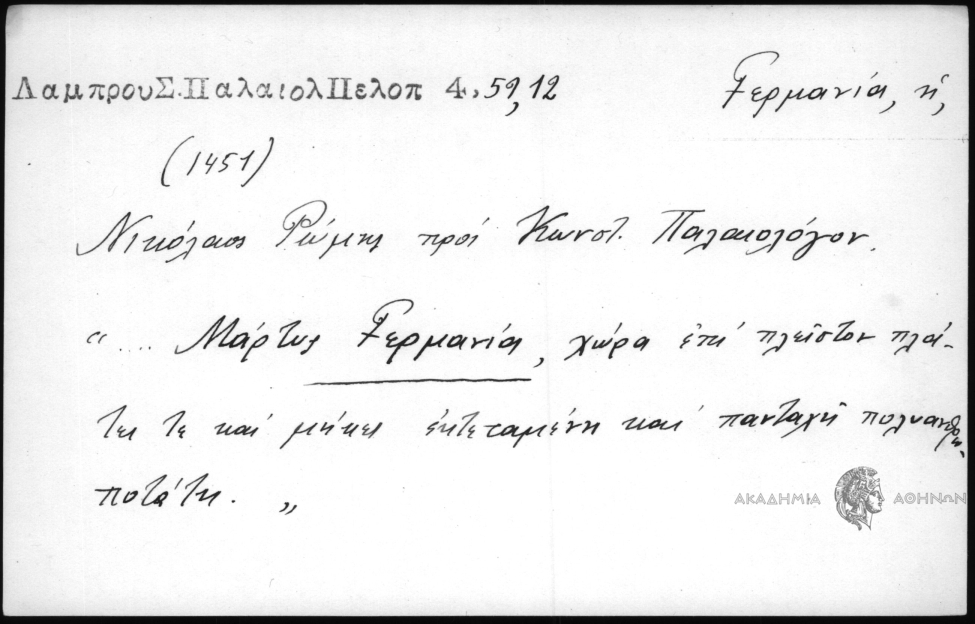 ΛαμπρουΣ.ΠαλαιολΠελοπ 4, 59,12
Γερμανία, ἡ,
(1451)
Νικόλαος Ρώμης πρὸς Κωνστ. Παλαιολόγον.
“ ... Μάρτυς Γερμανία, χώρα ἐπὶ πλεῖστον πλά-
τει τε καὶ μήκει ἐκτεταμένη καὶ πανταχῆ πολυανθρω-
ποτάτη. „
ΑΚΑΔΗΜΙΑ ΑΘΗΝΩΝ